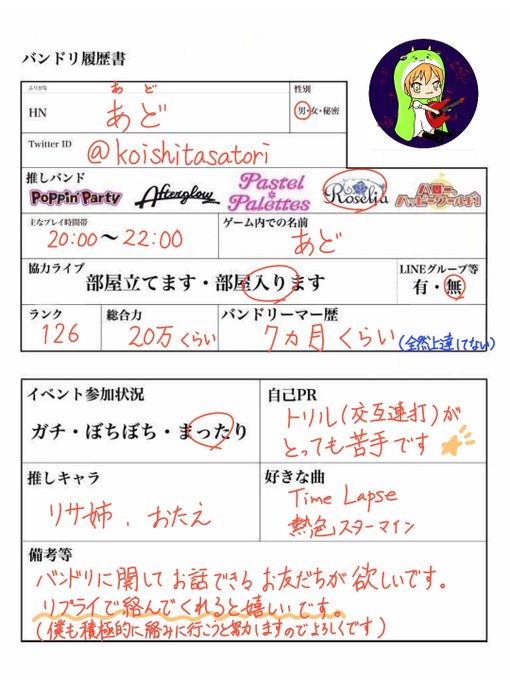 バンドリ履歴書
ふりがな あど
HN あど
性別
男・女・秘密
Twitter ID @koishitasatori
推しバンド
Poppin'Party Afterglow Pastel*Palettes Roselia ハロー、ハッピーワールド!
主なプレイ時間帯
20:00〜22:00
ゲーム内での名前
あど
協力ライブ
部屋立てます・部屋入ります
LINEグループ等
有・無
ランク
126
総合力
20万くらい
バンドリーマー歴
7ヵ月くらい(全然上達してない)
イベント参加状況
ガチ・ぼちぼち・まったり
自己PR
トリル(交互連打)が
とっても苦手です
推しキャラ
リサ姉、おたえ
好きな曲
Time Lapse
熱色スターマイン
備考等
バンドリに関してお話できるお友だちが欲しいです。
リプライで絡んでくれると嬉しいです。
(僕も積極的に絡みに行こうと努力しますのでよろしくです)